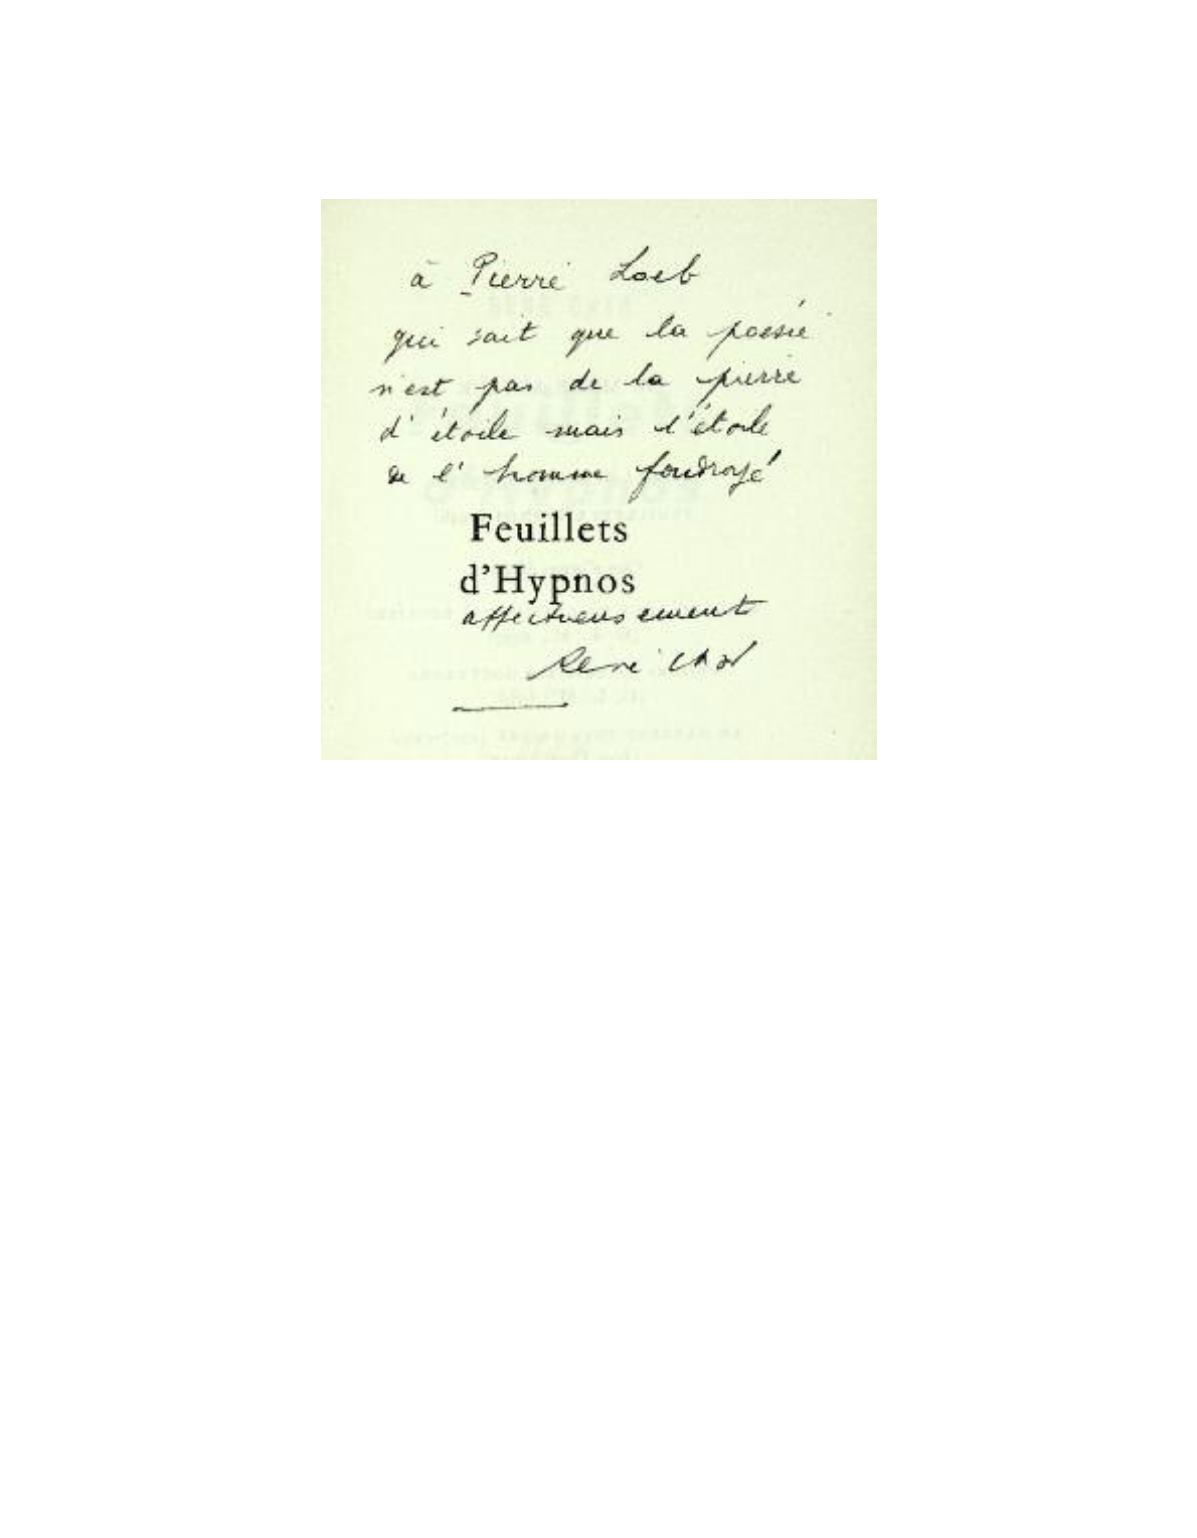 à Pierre Loeb
qui sait que la poésie
n'est pas de la pierre
d'étoile mais l'étoile
de l'homme foudroyé
Feuillets
d'Hypnos
affectueusement
René Char